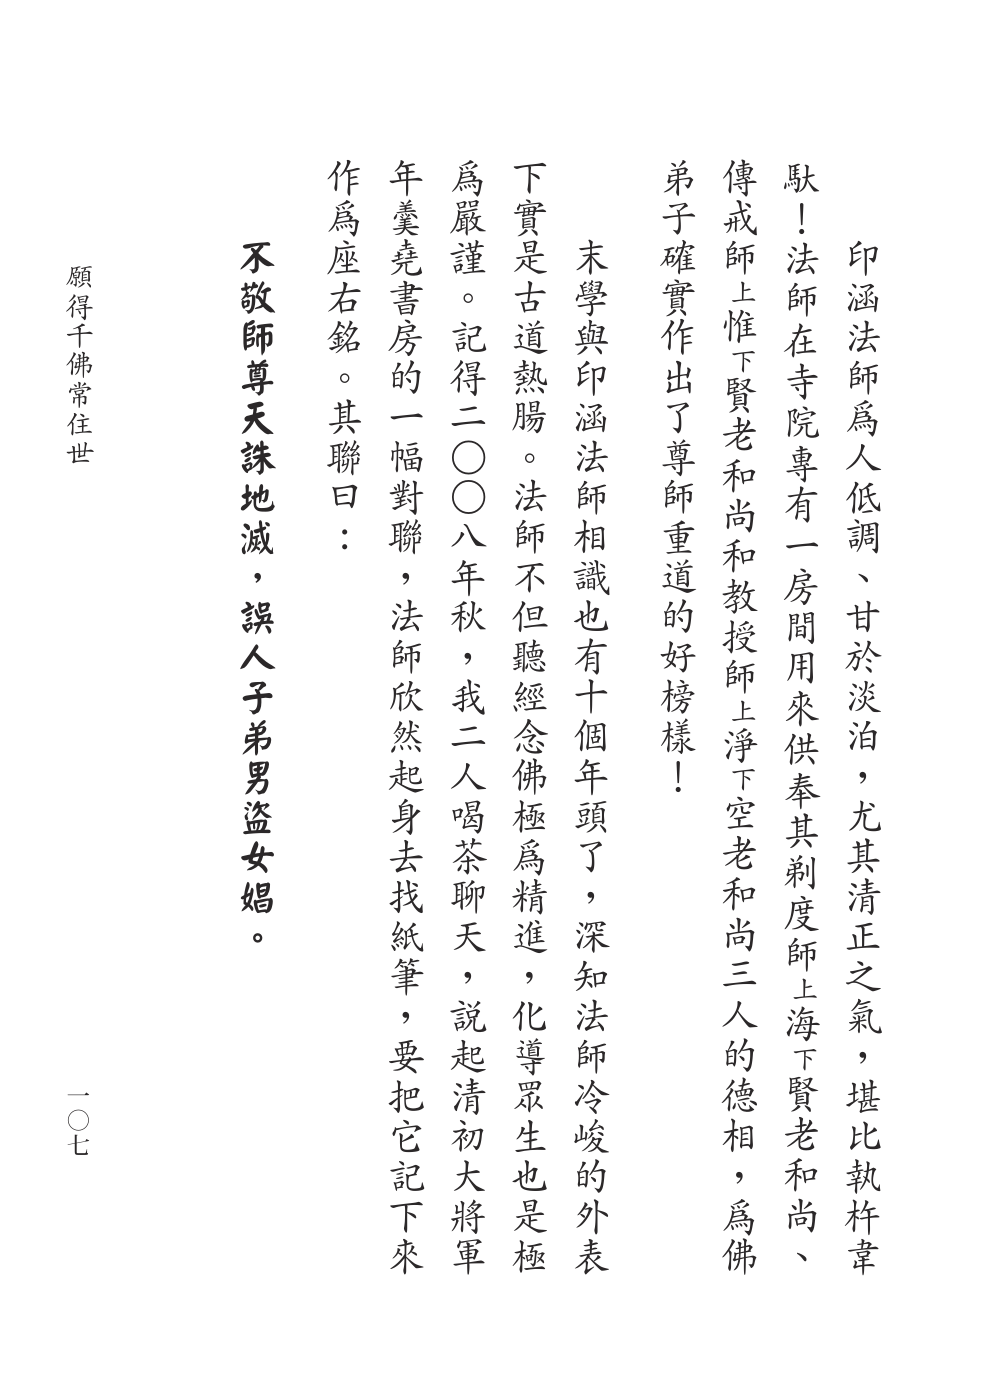 印涵法師爲人低調、甘於淡泊，尤其清正之氣，堪比執杵韋
馱！法師在寺院專有一房間用來供奉其剃度師上海下賢老和尚、
傳戒師上惟下賢老和尚和教授師上淨下空老和尚三人的德相，爲佛
弟子確實作出了尊師重道的好榜樣！
末學與印涵法師相識也有十個年頭了，深知法師冷峻的外表
下實是古道熱腸。法師不但聽經念佛極爲精進，化導眾生也是極
爲嚴謹。記得二〇〇八年秋，我二人喝茶聊天，説起清初大將軍
年羹堯書房的一幅對聯，法師欣然起身去找紙筆，要把它記下來
作爲座右銘。其聯曰：
不敬師尊天誅地滅，誤人子弟男盜女娼。
願得千佛常住世
一〇七